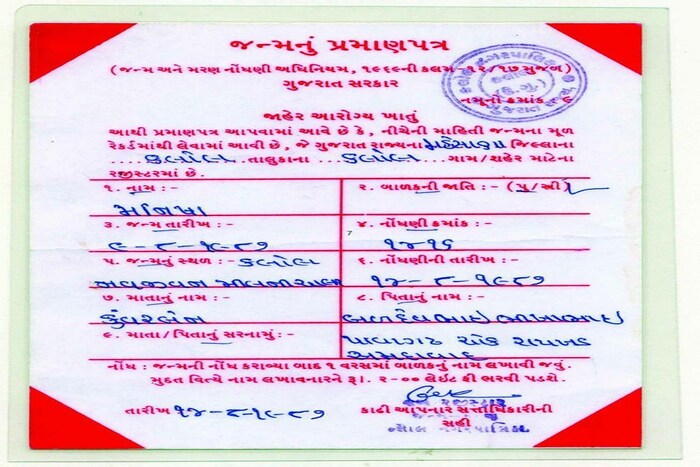 જન્મનું પ્રમાણપત્ર
(જન્મ અને મરણ નોંધણી અધિનિયમ, ૧૯૬૯ની કલમ -૧૨/૧૭ મુજબ)
ગુજરાત સરકાર
નમૂનો ક્રમાંક ૯
જાહેર આરોગ્ય ખાતું
આથી પ્રમાણપત્ર આપવામાં આવે છે કે, નીચેની માહિતી જન્મના મૂળ
રેકર્ડમાંથી લેવામાં આવી છે, જે ગુજરાત રાજ્યના મહેસાણા જિલ્લાના
કલોલ તાલુકાના કલોલ ગામ/શહેર માટેના
રજીસ્ટરમાં છે.
૧. નામ :-
૨. બાળકની જાતિ :- (પુ/સ્ત્રી)
૩. જન્મ તારીખ :-
૪. નોંધણી ક્રમાંક :-
૯-૮-૧૯૮૭
૧૪૧૬
૫. જન્મનું સ્થળ :- કલોલ
૬. નોંધણીની તારીખ :-
૧૪-૮-૧૯૮૭
૭. માતાનું નામ :-
૮. પિતાનું નામ :-
કુંવરબેન
બળદેવભાઇ
૯. માતા/પિતાનું સરનામું :-
અમદાવાદ
નોંધ : - જન્મની નોંધ કરાવ્યા બાદ ૧ વરસમાં બાળકનું નામ લખાવી જવું.
મુદત વિત્યે નામ લખાવનારને રૂા. ૨-૦૦ લેઇટ ફી ભરવી પડશે.
તારીખ ૧૪-૮-૧૯૮૭
કાઢી આપનાર સત્તાધિકારીની
સહી